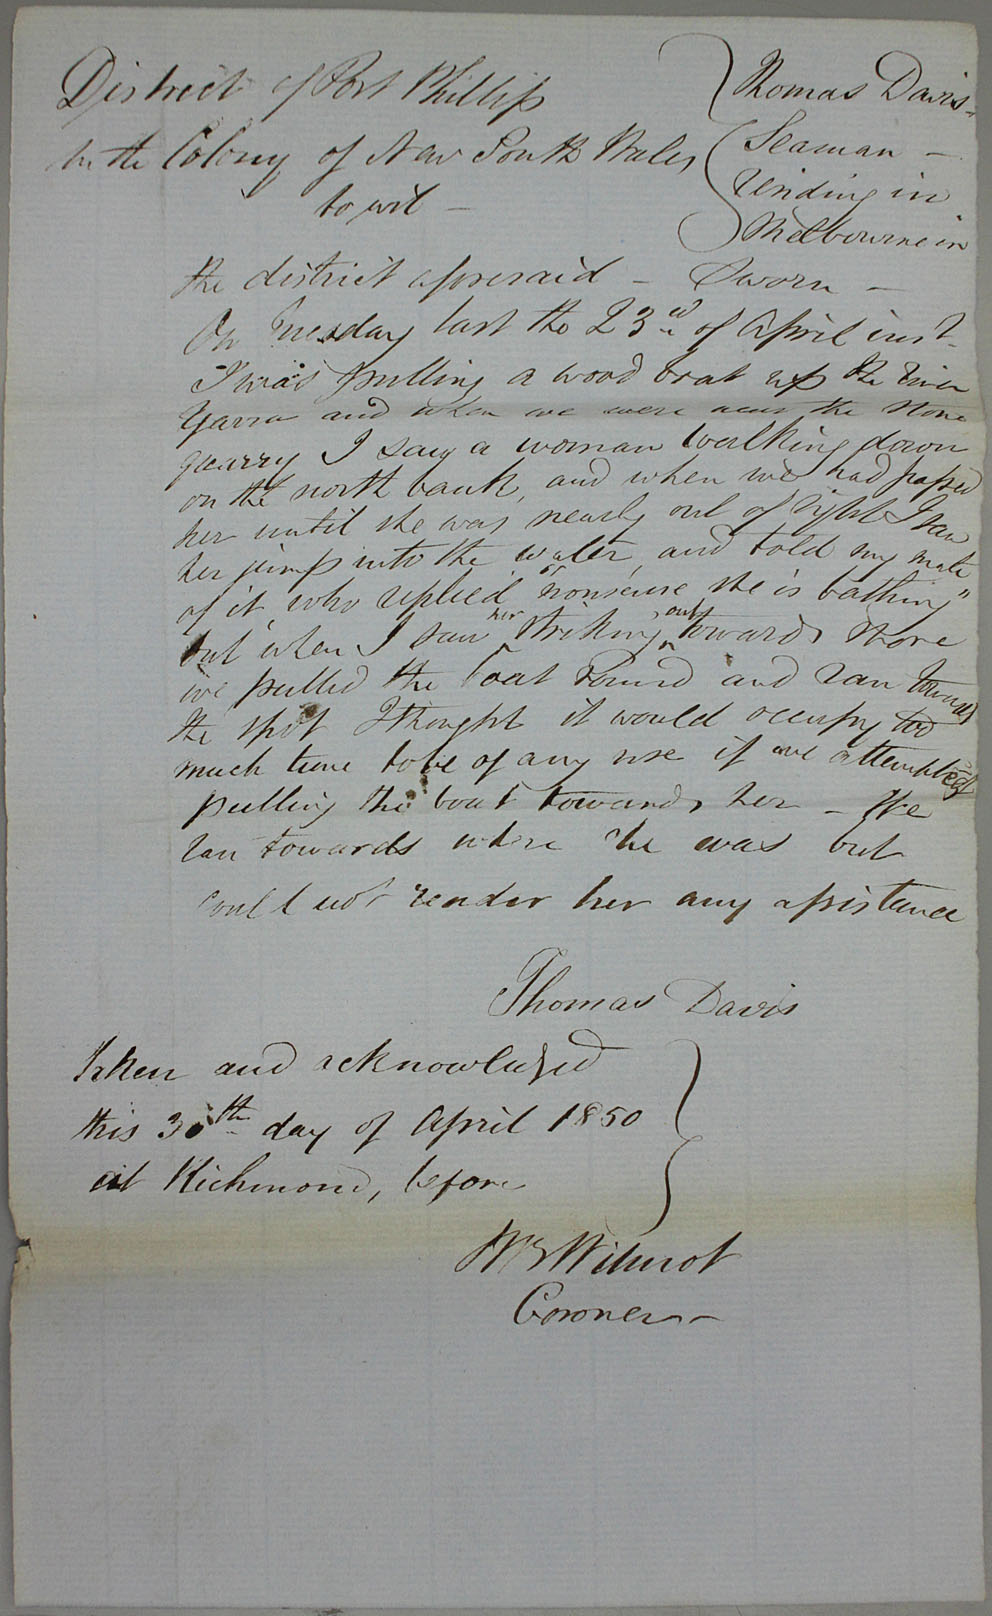 District of Port Phillip
in the Colony of New South Wales
to wit —
Thomas Davis —
Seaman —
residing in
Melbourne in
the district aforesaid — Sworn —
On Tuesday last the 23rd of April inst.
I was pulling a wood boat up the River
Yarra and when we were near the stone
quarry I saw a woman walking down
on the north bank, and when we had passed
her until she was nearly out of sight I saw
her jump into the water, and told my mate
of it who replied "nonsense she is bathing"
but when I saw her striking out towards shore
we pulled the boat round and ran towards
the spot I thought it would occupy too
much time to be of any use if we attempted
pulling the boat towards her — We
ran towards where she was but
could not render her any assistance
Thomas Davis
Taken and acknowledged
this 30th day of April 1850
at Richmond, before
Wilmot
Coroner —